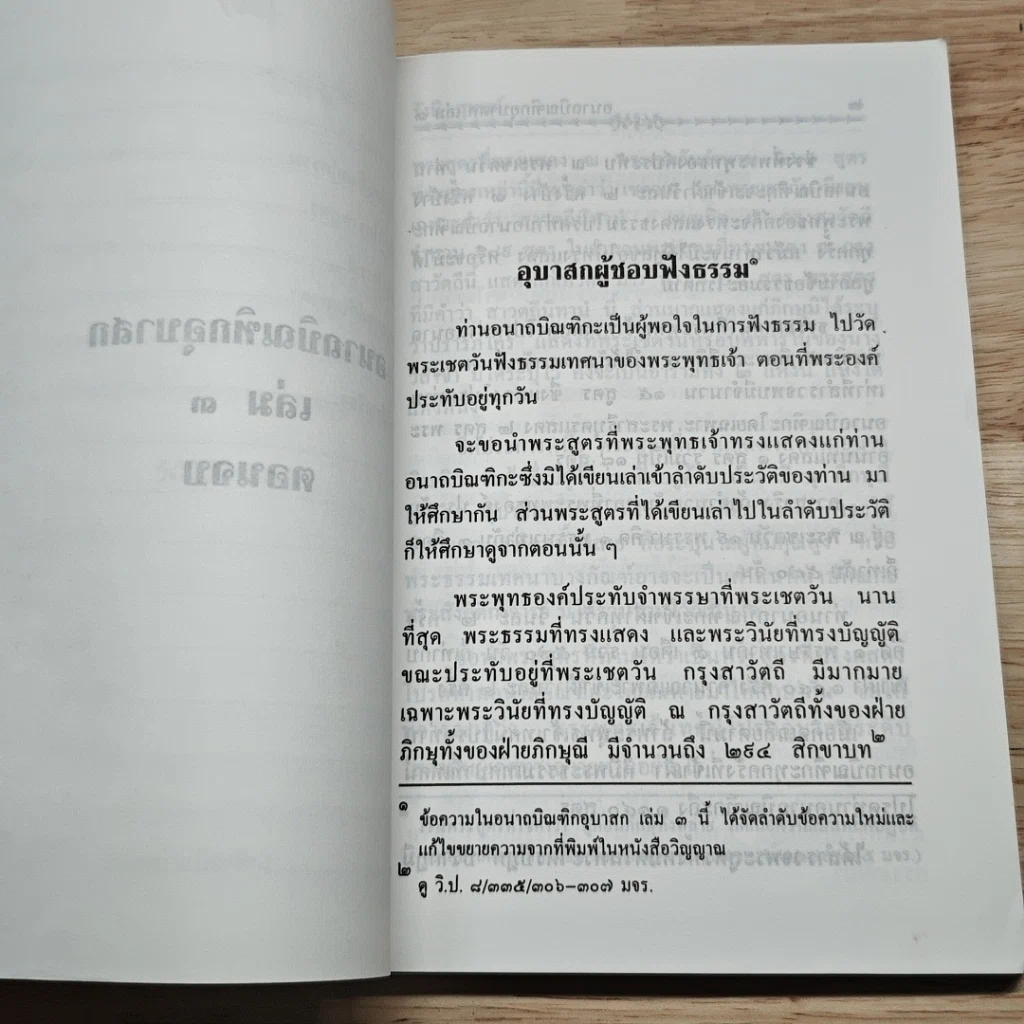 อุบาสกผู้ชอบฟังธรรม๑
ท่านอนาถบิณฑิกะเป็นผู้พอใจในการฟังธรรม ไปวัด
พระเชตวันฟังธรรมเทศนาของพระพุทธเจ้า ตอนที่พระองค์
ประทับอยู่ทุกวัน
จะขอนำพระสูตรที่พระพุทธเจ้าทรงแสดงแก่ท่าน
อนาถบิณฑิกะซึ่งมิได้เขียนเล่าเข้าลำดับประวัติของท่าน มา
ให้ศึกษากัน ส่วนพระสูตรที่ได้เขียนเล่าไปในลำดับประวัติ
ก็ให้ศึกษาดูจากตอนนั้น ๆ
พระพุทธองค์ประทับจำพรรษาที่พระเชตวัน นาน
ที่สุด พระธรรมที่ทรงแสดง และพระวินัยที่ทรงบัญญัติ
ขณะประทับอยู่ที่พระเชตวัน กรุงสาวัตถี มีมากมาย
เฉพาะพระวินัยที่ทรงบัญญัติ ณ กรุงสาวัตถีทั้งของฝ่าย
ภิกษุทั้งของฝ่ายภิกษุณี มีจำนวนถึง ๒๙๔ สิกขาบท๒
๑ ข้อความในอนาถบิณฑิกอุบาสก เล่ม ๓ นี้ ได้จัดลำดับข้อความใหม่และ
แก้ไขขยายความจากที่พิมพ์ในหนังสือวิญญาณ
๒ ดู วิ.ป. ๘/๓๓๕/๓๐๖–๓๐๗ มจร.